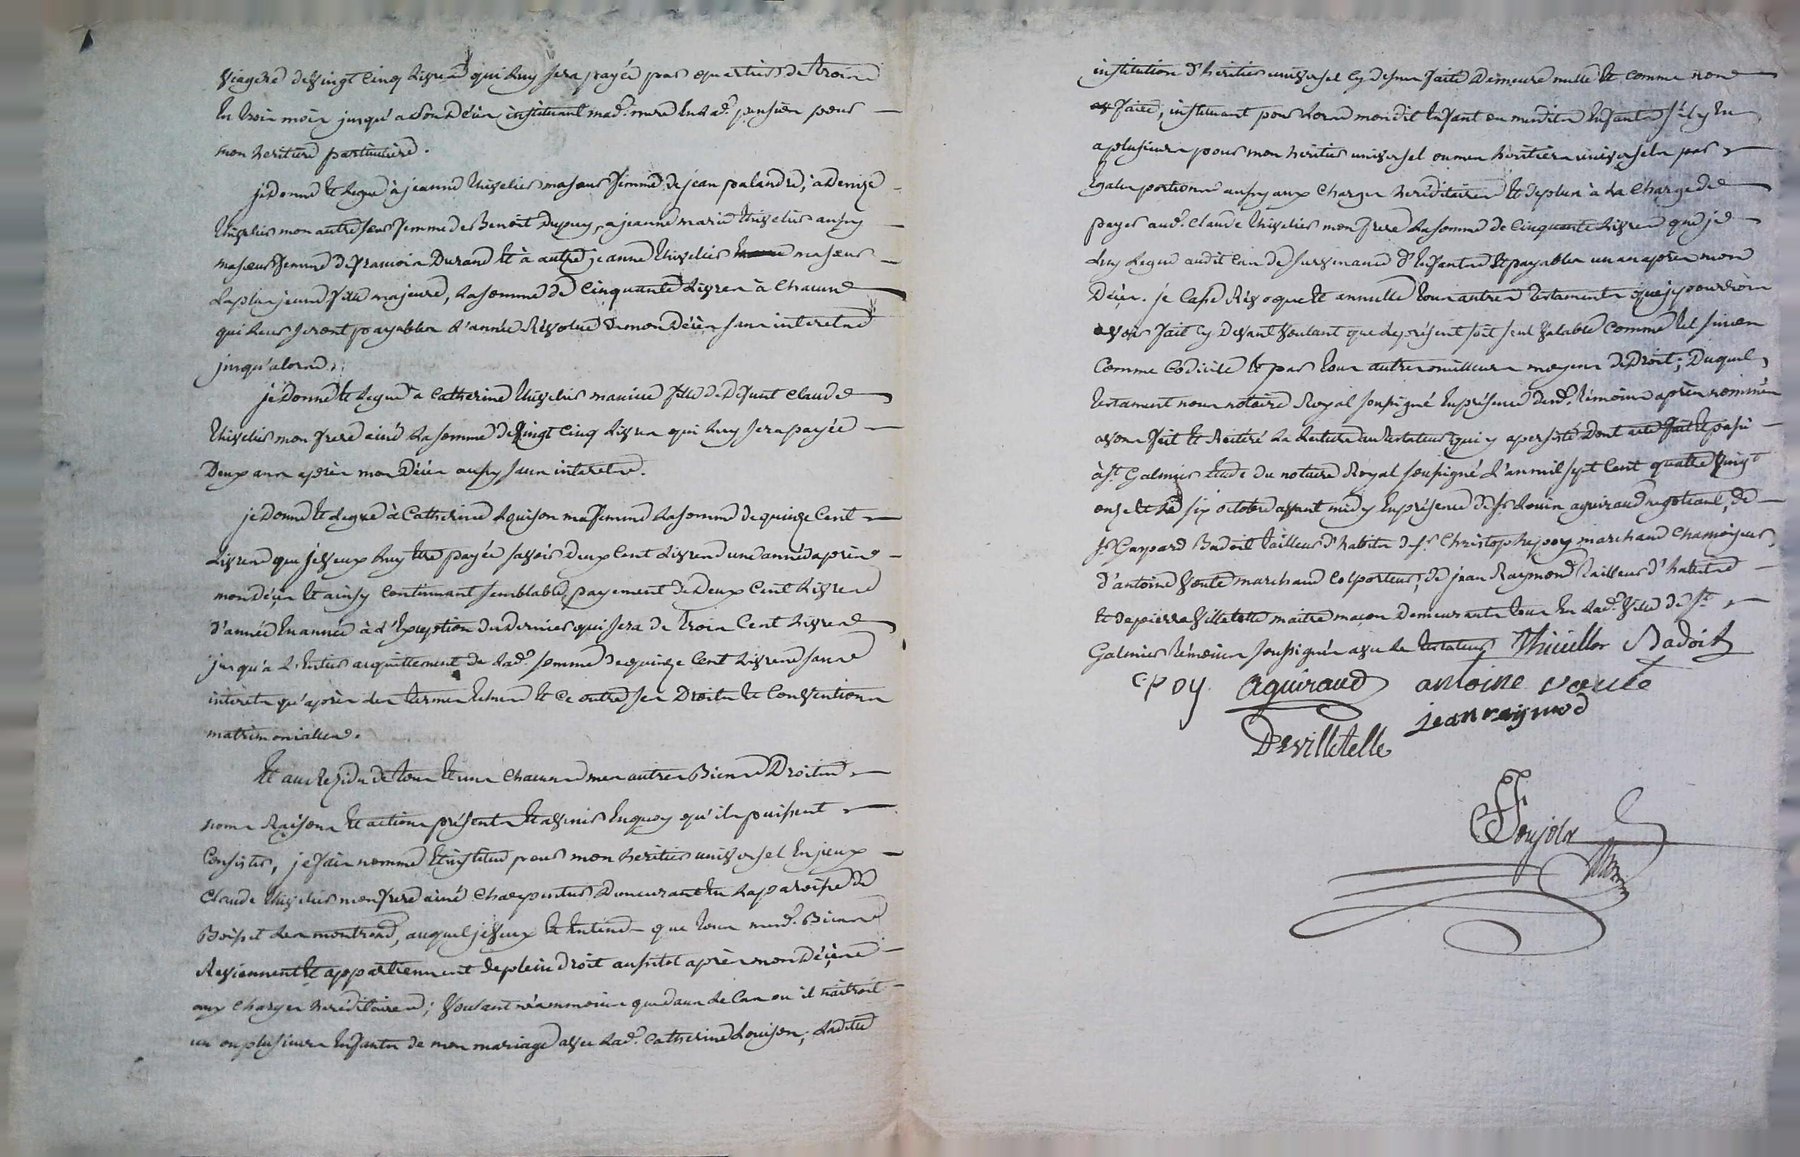 viagere de vingt cinq livres qui luy sera payée par quartier de trois
en trois mois jusqu'a son décès instituant mad. mere en lad. pension pour
mon heritiere particuliere.
je donne et legue à jeanne Thivelier ma sœur femme de jean palandre, à Denize
Thivelier mon autre sœur femme de Benoit Dupuy, a jeanne marie Thivelier aussy
ma sœur femme de francois Durand et à autre jeanne Thivelier ma sœur
la plus jeune fille majeure, la somme de cinquante livres à chacune
qui leur seront payables l'année révolue de mon décès sans interet
jusqu'alors.
je donne et legue à Catherine Thivelier maniere fille de defunt Claude
Thivelier mon frere ainé la somme de vingt cinq livres qui luy sera payée
Deux ans après mon décès aussy sans interets.
je donne et legue à Catherine Louison ma femme la somme de quinze cent
livres que je veux luy etre payée savoir deux cent livres une année après
mon décès et ainsy continuant semblable payement de Deux Cent livres
d'année en année à l'exception du dernier qui sera de trois Cent livres
jusqu'a l'entier acquittement de lad. somme de quinze Cent livres sans
interets qu'après les termes echus et ce outre ses Droits et Conventions
matrimoniales.
Et au residu de tous et uns chacuns mes autres Biens Droits
noms Raisons et actions présents et avenir en quoy qu'ils puissent
Consister, je fais nomme et institue pour mon heritier universel en jeux
Claude Thivelier mon frere ainé Charpentier Demeurant en la paroisse de
Boisset les montrond, auquel je veux et entend que tous mesd. Biens
Reviennent et appartiennent de plein droit aussitot après mon décès
aux charges hereditaires; voulant néanmoins que dans le Cas ou il naitroit
un ou plusieurs enfants de mon mariage avec lad. Catherine Louison, ladite
institution d'heritier universel cy dessus faite Demeure nulle et comme non
faite, instituant pour lors mondit enfant ou mesdits enfants s'il y en
a plusieurs pour mon heritier universel ou mes héritiers universels par
egales portions aussy aux charges hereditaires et de plus à la charge de
payer aud. Claude Thivelier mon frere la somme de Cinquante livres que je
luy legue audit Cas de survenance d'enfants et payables un an après mon
Décès. je Casse Révoque et annulle tous autres testaments que je pourrois
avoir fait cy devant voulant que le présent soit seul valable comme tel sinon
Comme Codicile et par tous autres meilleurs moyens de Droit; Duquel
testament nous notaire Royal soussigné en présence desd. témoins après nommés
avons fait et Réitéré la lecture au testateur qui y a persisté Dont acte fait et passé
à St. Galmier etude du notaire Royal soussigné l'an mil sept Cent quatre vingt
onze et le six octobre avant midy en présence de Sr. Louis aguiraud negotiant, de
Sr. Gaspard Badoil tailleur d'habits de Sr. Christophe poy marchand chamoiseur,
d'antoine vente marchand Colporteur, de jean Raymond tailleur d'habits
et de pierre villetelle maitre maçon Demeurants tous en lad. ville de St.
Galmier témoins soussignés avec le testateur Thivellier Badoil
C poy aguiraud antoine vente
jean raymod
Devilletelle